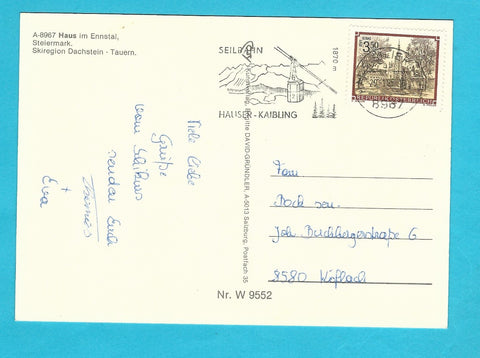 A-8967 Haus im Ennstal,
Steiermark.
Skiregion Dachstein - Tauern.
SEILBAHN
1870 m
HAUSER-KAIBLING
3.50
REPUBLIK ÖSTERREICH
8967
Viele liebe
Grüße
vom Skikurs
senden Euch
Thomas
+
Eva
Brigitte DAVID-GRÜNDLER, A-5013 Salzburg, Postfach 35
Fam.
Bock sen.
Joh. Buchbergerstraße 6
8580 Köflach
Nr. W 9552